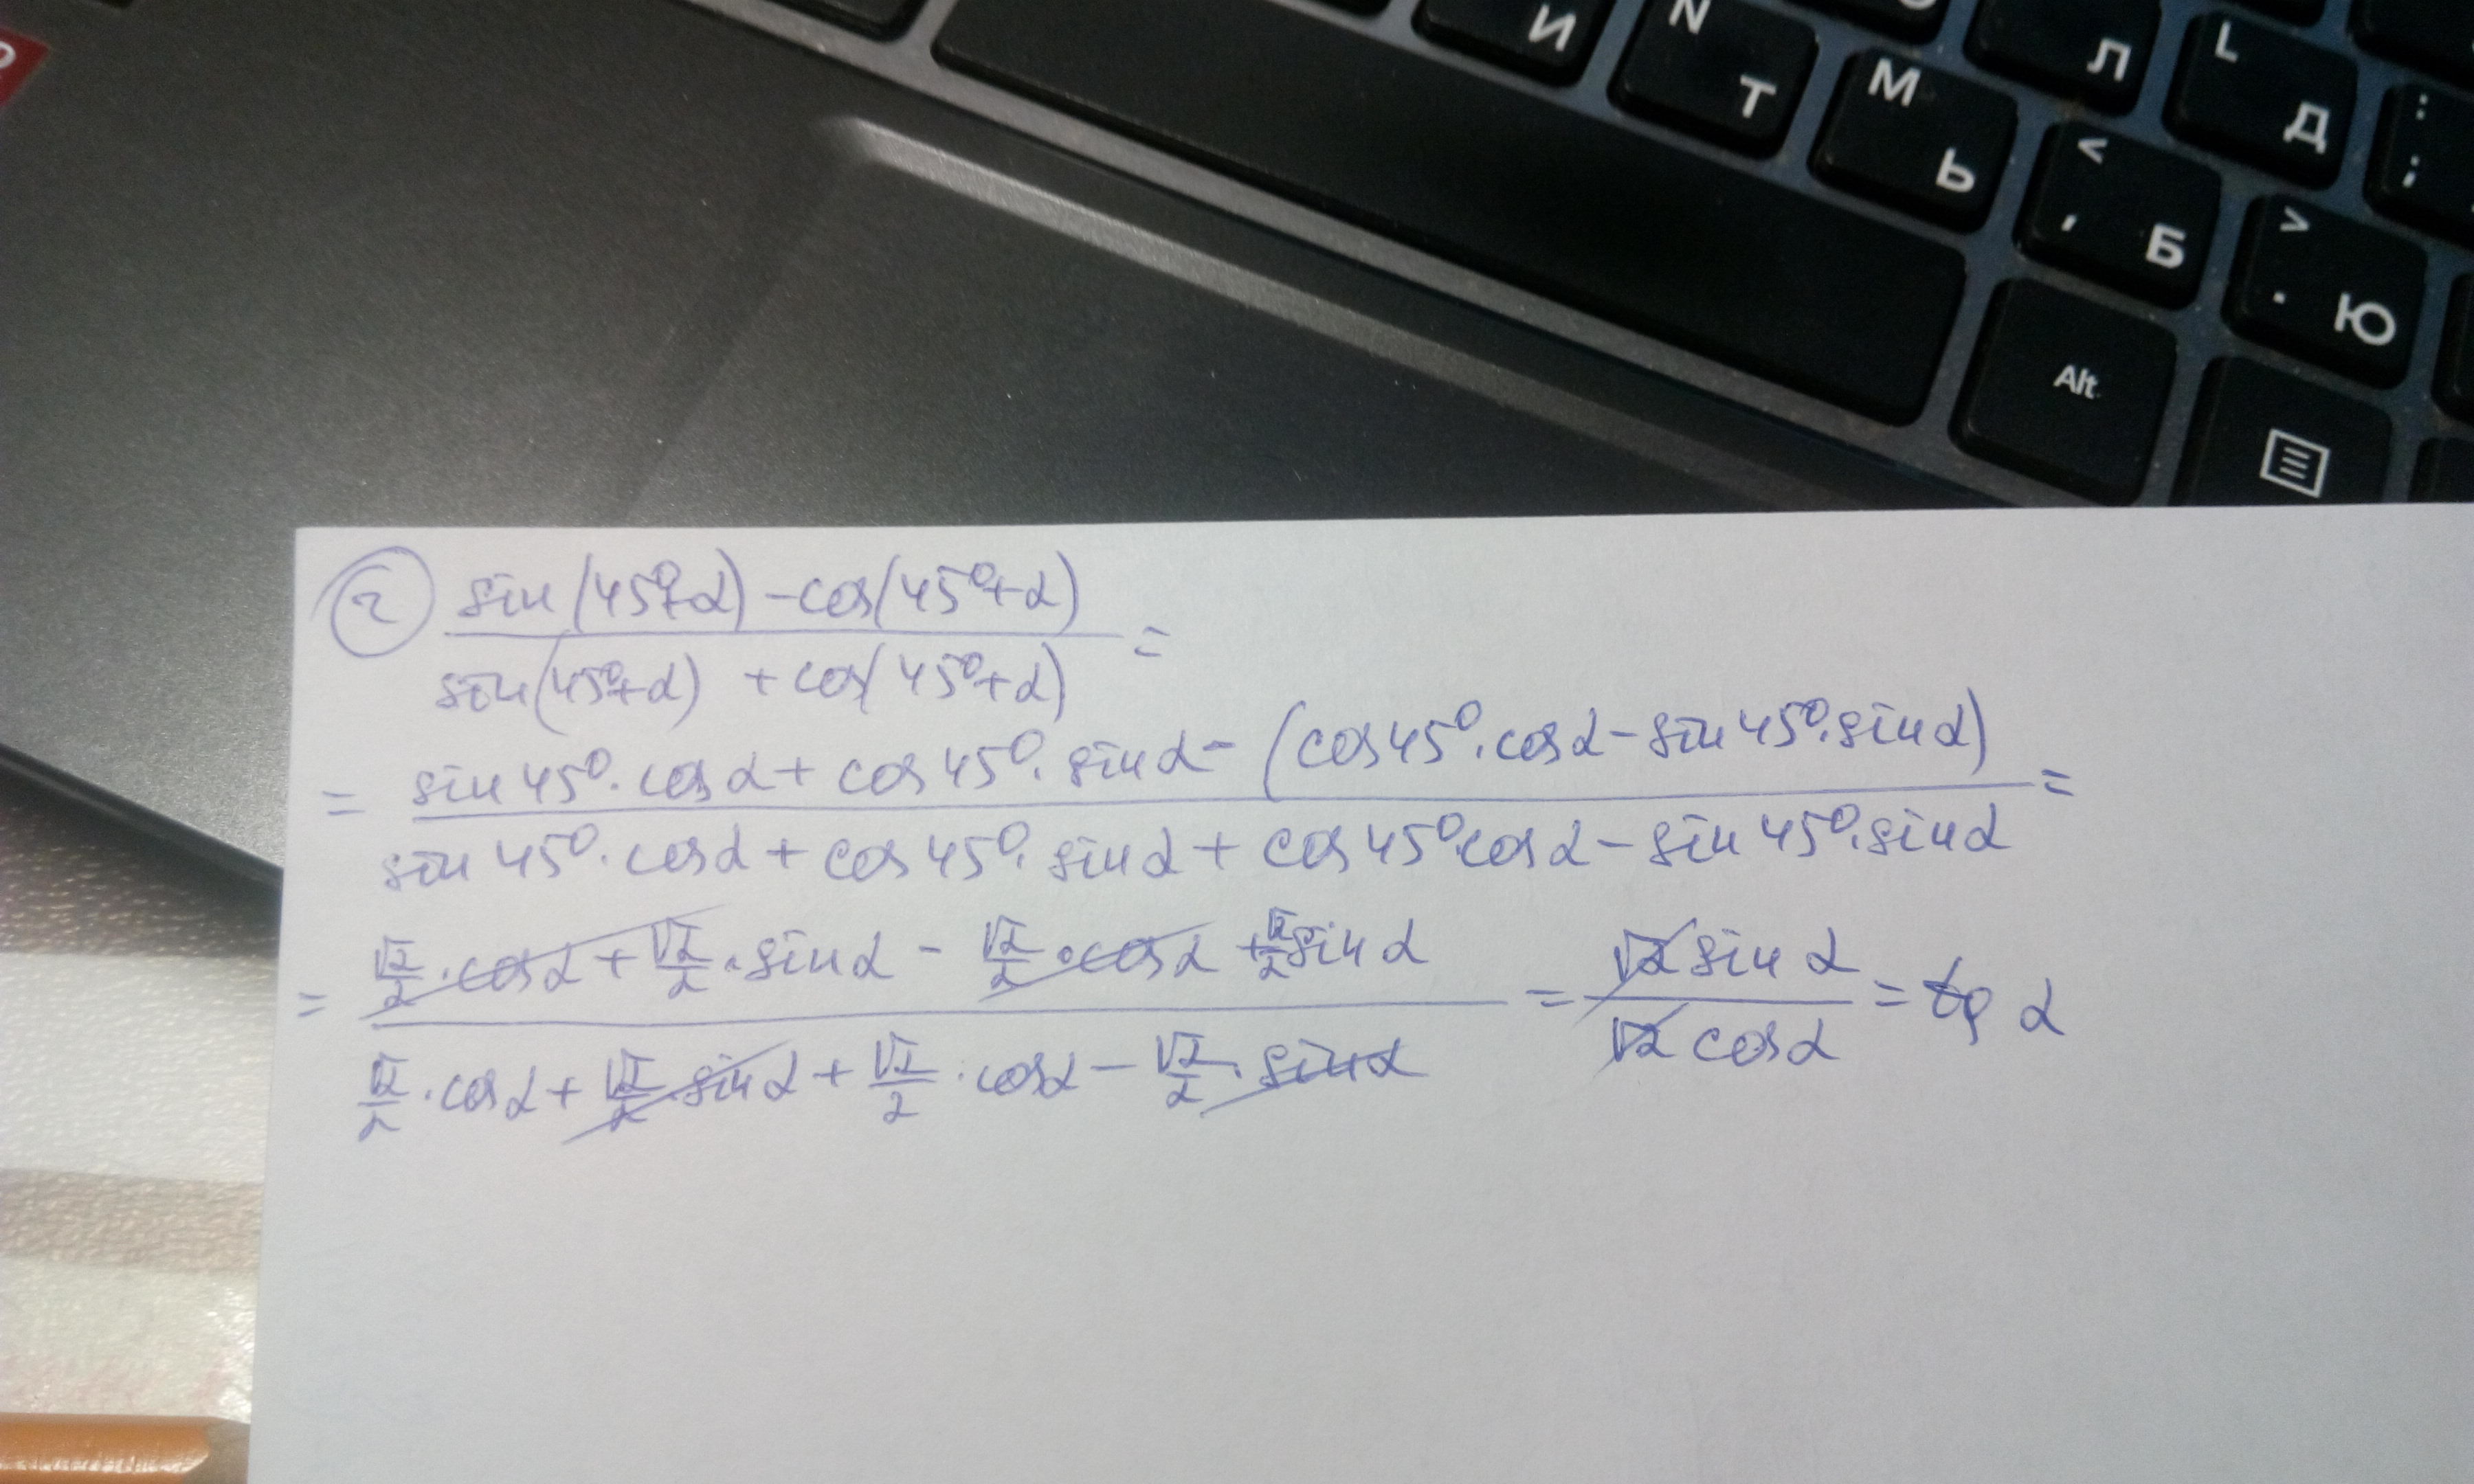 И
N Т
М Ь
Л
< , Б
L Д
: ;
> . Ю
Alt
② sin(45°+α) - cos(45°+α) =
sin(45°+α) + cos(45°+α)
= sin 45° · cos α + cos 45° · sin α - (cos 45° · cos α - sin 45° · sin α) =
sin 45° · cos α + cos 45° · sin α + cos 45° · cos α - sin 45° · sin α
= √2/2 · cos α + √2/2 · sin α - √2/2 · cos α + √2/2 sin α = √2 sin α = tg α
√2/2 · cos α + √2/2 · sin α + √2/2 · cos α - √2/2 · sin α √2 cos α